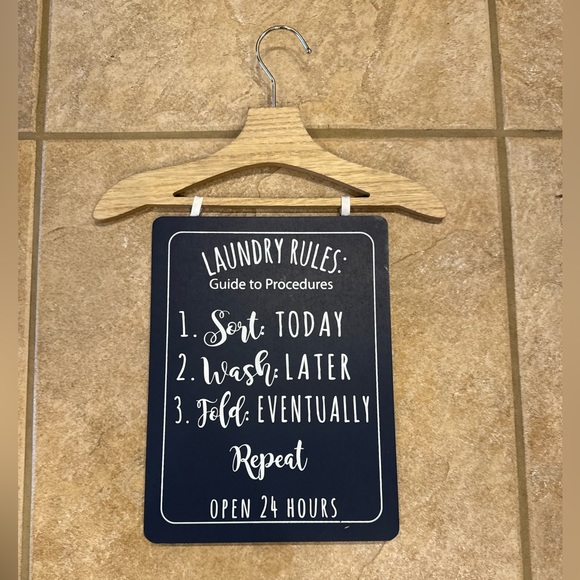 LAUNDRY RULES:
Guide to Procedures
1. Sort: TODAY
2. Wash: LATER
3. Fold: EVENTUALLY
Repeat
OPEN 24 HOURS